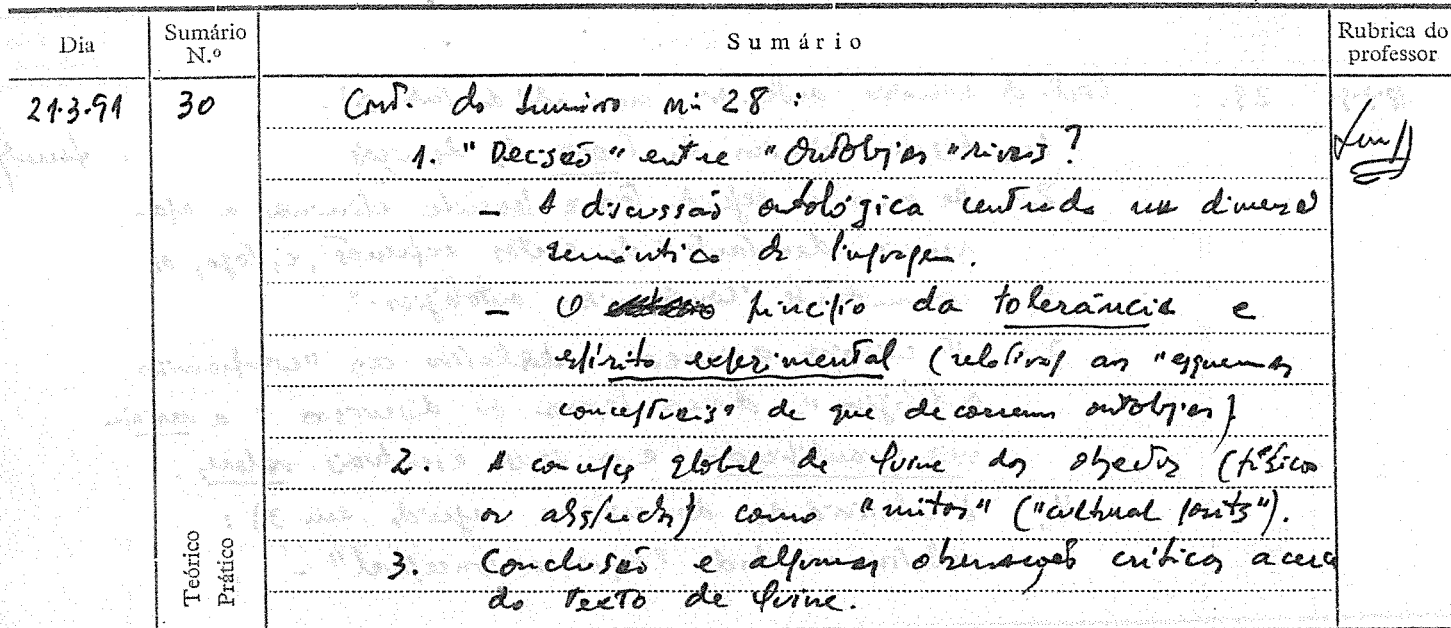 Dia
Sumário N.º
Sumário
Rubrica do professor
21.3.91
30
Cont. do Sumário nº 28 :
1. "Decisão" entre "ontologias" rivais?
- A discussão ontológica centrada na dimensão
semântica da linguagem.
- O princípio da tolerância e
espírito experimental (relativos aos "esquemas
conceptuais" de que decorrem ontologias)
2. A concepção global de Quine dos objectos (físicos
ou abstractos) como "mitos" ("cultural posits").
3. Conclusão e algumas observações críticas acerca
do texto de Quine.
Teórico
Prático